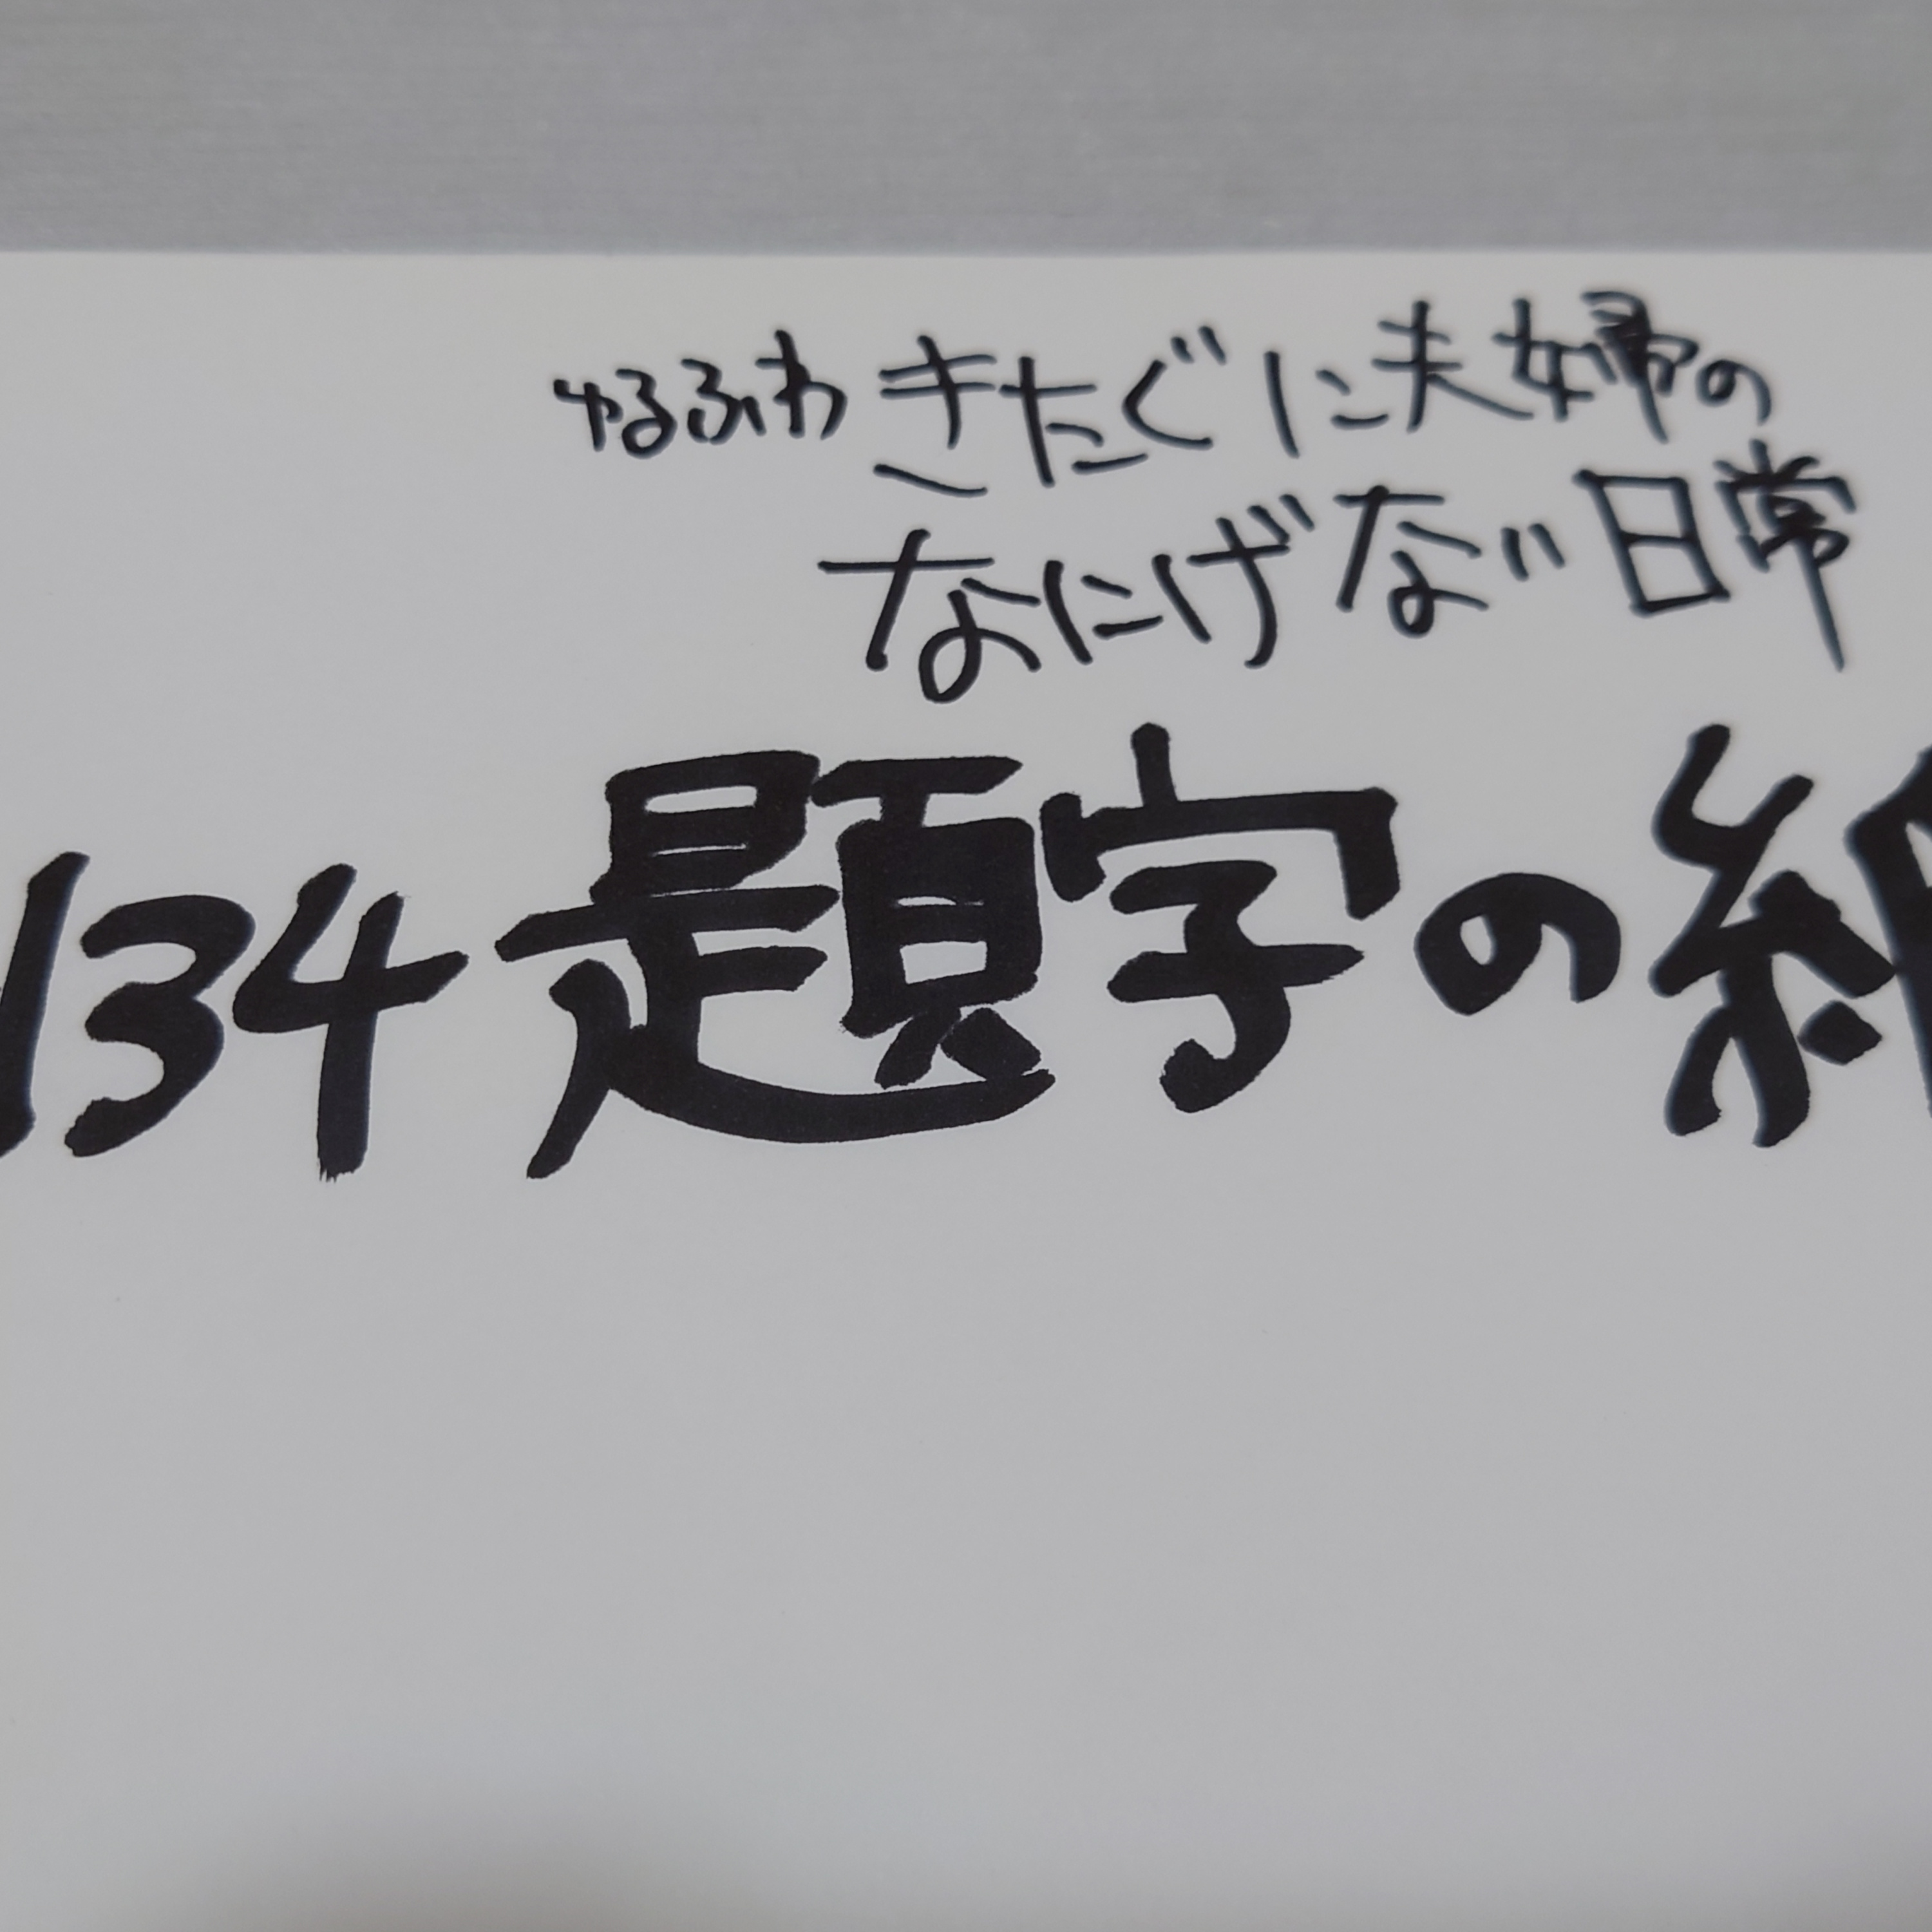 ゆるふわ きたぐに夫婦の
なにげない日常
134 題字の